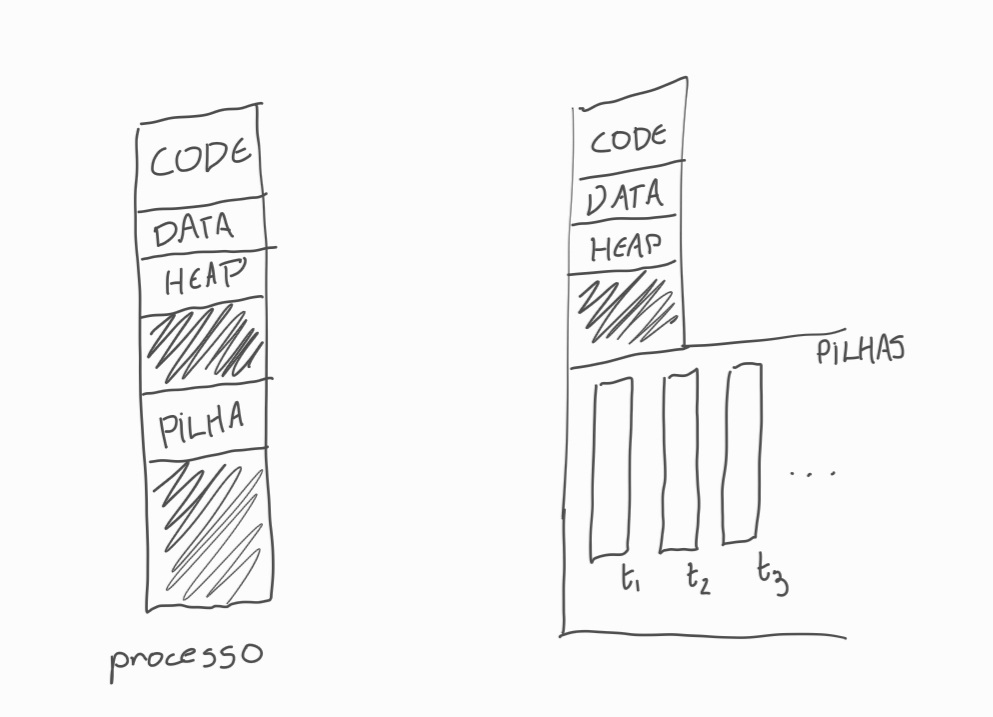 CODE
DATA
HEAP
PILHA
processo
CODE
DATA
HEAP
PILHAS
...
t1
t2
t3